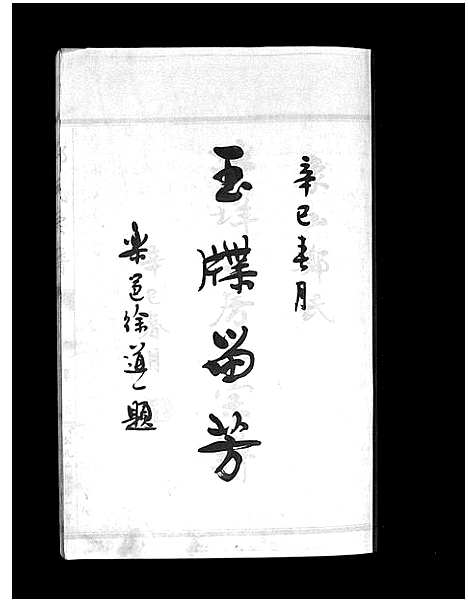 辛巳春月
玉牒留芳
樂邑徐道一題